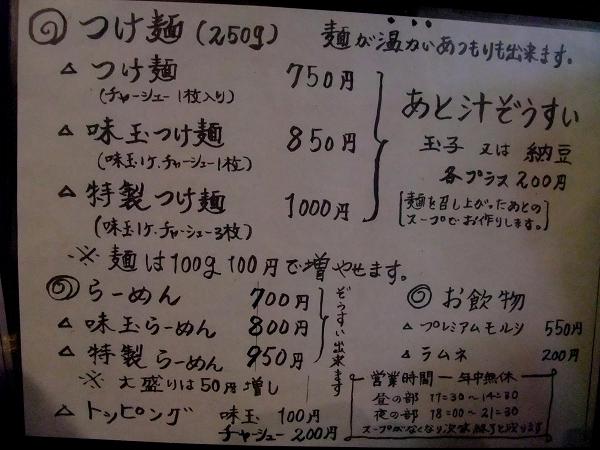 つけ麺(250g) 麺が温かいあつもりも出来ます。
△ つけ麺 750円
(チャーシュー1枚入り)
△ 味玉つけ麺 850円
(味玉1ケ.チャーシュー1枚)
△ 特製つけ麺 1000円
(味玉1ケ.チャーシュー3枚)
あと汁ぞうすい
玉子 又は 納豆
各プラス200円
[麺を召し上がったあとの
スープでお作りします。]
※ 麺は100g100円で増やせます。
らーめん 700円
△ 味玉らーめん 800円
△ 特製らーめん 950円
ぞうすい出来ます
※ 大盛りは50円増し
△ トッピング 味玉 100円
チャーシュー 200円
◎ お飲物
△ プレミアムモルツ 550円
△ ラムネ 200円
営業時間ー年中無休
昼の部 11:30〜14:30
夜の部 18:00〜21:30
スープがなくなり次第終了と成ります